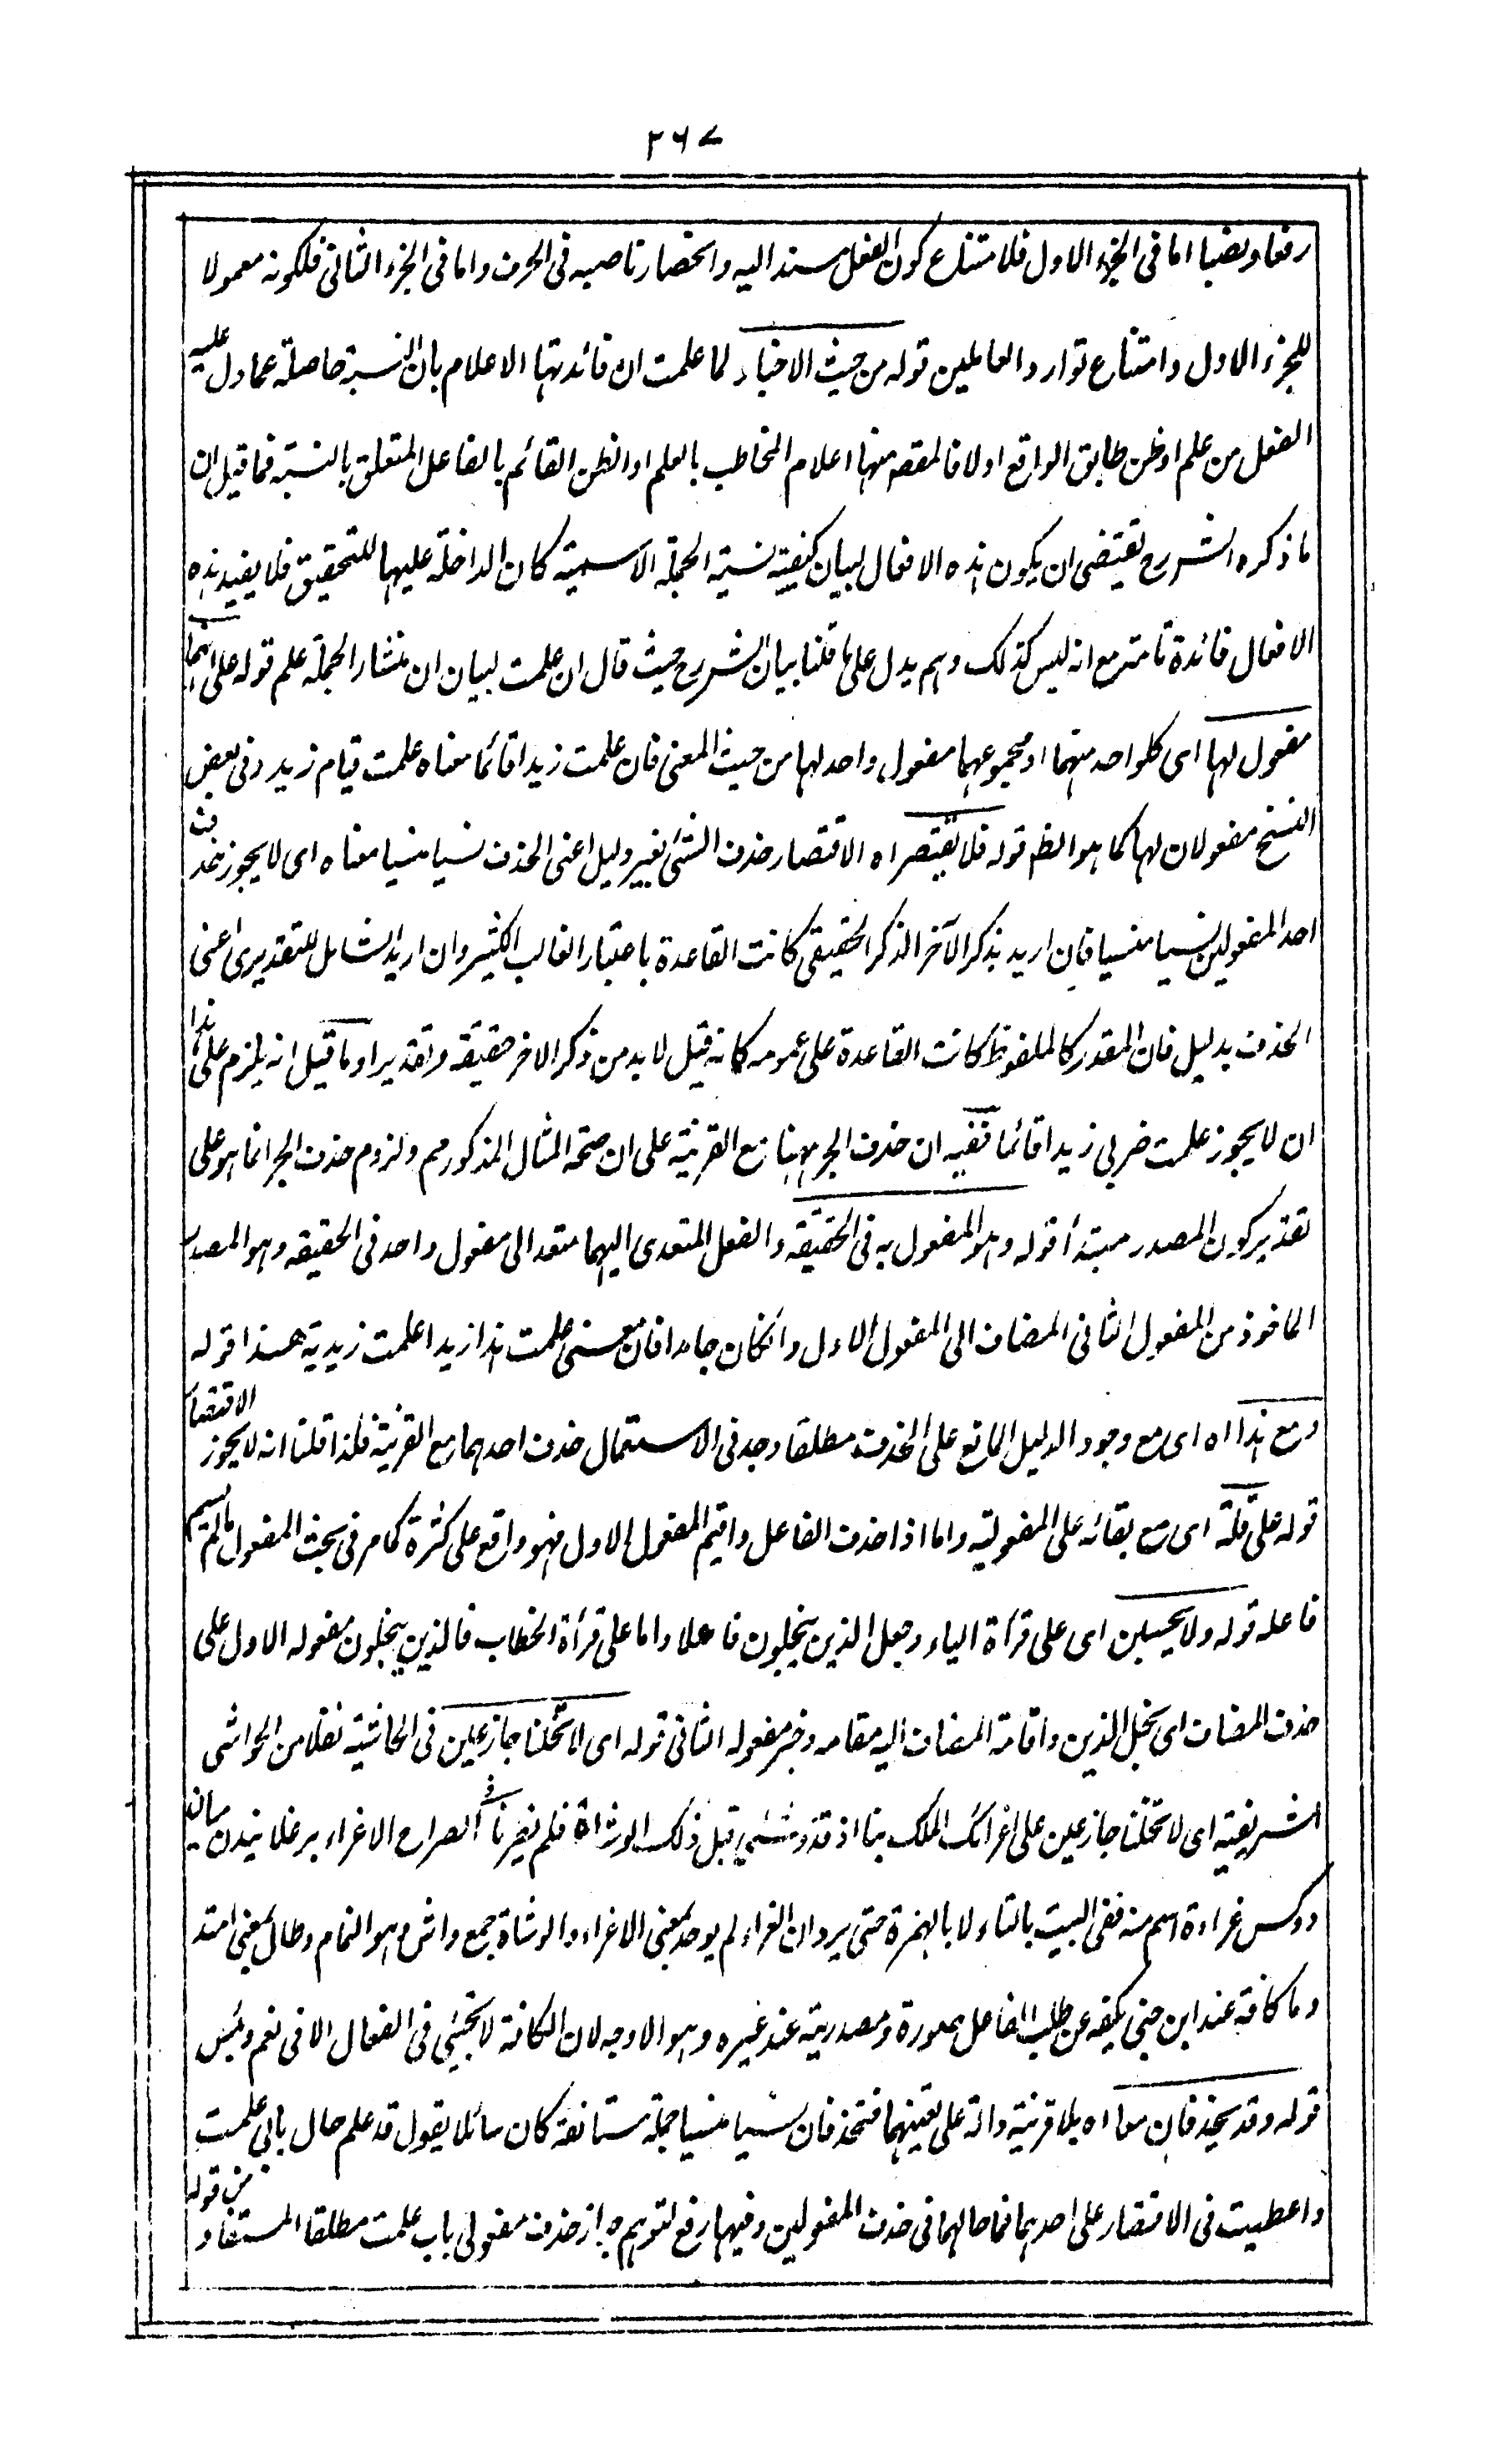 ٣٦٧
رفعا ونصبا اما فى الجزء الاول فلامتناع كون الفعل مسندا اليه وانحصار ناصبه فى الحرف واما فى الجزء الثانى فلكونه معمولا
للجزء الاول وامتناع توارد العاملين قوله من حيث الاخبار لما علمت ان فائدتها الاعلام بان النسبة حاصلة عما دل عليه
الفعل من علم او ظن طابق الواقع اولا فالمقصه منها اعلام المخاطب بالعلم او الظن القائم بالفاعل المتعلق بالنسبة فما قيل ان
ما ذكره الشرح يقتضى ان يكون هذه الافعال لبيان كيفية نسبة الجملة الاسمية كان الداخلة عليها للتحقيق فلا يفيد هذه
الافعال فائدة تامة مع انه ليس كذلك وهم يدل على ما قلنا بيان الشرح حيث قال ان علمت لبيان ان منشار الجملة علم قوله على انهما
مفعول لها اى كلواحد منهما او مجموعهما مفعول واحد لها من حيث المعنى فان علمت زيدا قائما معناه علمت قيام زيد وفى بعض
النسخ مفعولان لها كما هو الظ قوله فلا يقتصر اه الاقتصار حذف الشئ بغير دليل اعنى الحذف نسيا منسيا معناه اى لا يجوز حذف
احد المفعولين نسيا منسيا فان اريد بذكر الآخر الذكر الحقيقى كانت القاعدة باعتبار الغالب الكثير وان اريد الشامل للتقديرى اعنى
الحذف بدليل فان المقدر كالملفوظ كانت القاعدة على عمومه كانه قيل لا بد من ذكر الاخر حقيقة وتقديرا وما قيل انه يلزم على هذا
ان لا يجوز علمت ضربى زيدا قائما ففيه ان حذف الجر ههنا مع القرينة على ان صحة المثال المذكور مم ولزوم حذف الجر انما هو على
تقدير كون المصدر مبتدأ قوله وهو المفعول به فى الحقيقة والفعل المتعدى اليهما متعد الى مفعول واحد فى الحقيقه وهو المصدر
الماخوذ من المفعول الثانى المضاف الى المفعول الاول وانكان جامدا فان معنى علمت هذا زيدا علمت زيدية هذا قوله
ومع هذا اه اى مع وجود الدليل المانع على الحذف مطلقا وجد فى الاستعمال حذف احدهما مع القرينة فلذا قلنا انه لا يجوز الاقتصار
قوله على قلة اى مع بقائه على المفعولية واما اذا حذف الفاعل واقيم المفعول الاول فهو واقع على كثرة كما مر فى بحث المفعول مالم يسم
فاعله قوله ولا يحسبن اى على قرأة الياء وجعل الذين يبخلون فاعلا واما على قرأة الخطاب فالذين يبخلون مفعوله الاول على
حذف المضاف اى بخل الذين واقامة المضاف اليه مقامه وخير مفعوله الثانى قوله اى لا تخلنا جازعين فى الحاشية نقلا من الحواشى
الشريفية اى لا تخلنا جازعين على اغرائك الملك بنا اذ قد وشى قبل ذلك الوشاة فلم يضرنا فى الصراح الاغراء برغلانيدن
غراءة اسم منه ففى البيت بالتاء لا بالهمزة حتى يرد ان الغراء لم يوجد بمعنى الاغراء والوشاة جمع واش وهو النمام وطال بمعنى امتد
وما كافة عند ابن جنى يكفه عن طلب الفاعل صورة ومصدرية عند غيره وهو الاوجه لان الكافة لا تجيئ فى الفعال الا فى نعم وبئس
قوله وقد يحذفان معا اه بلا قرينة دالة على تعينهما فتحذفان نسيا منسيا جملة مستانفة كان سائلا يقول قد علم حال بابى علمت
واعطيت فى الاقتصار على احدهما فما حالهما فى حذف المفعولين وفيها رفع لتوهم جواز حذف مفعولى باب علمت مطلقا المستفاد من قوله